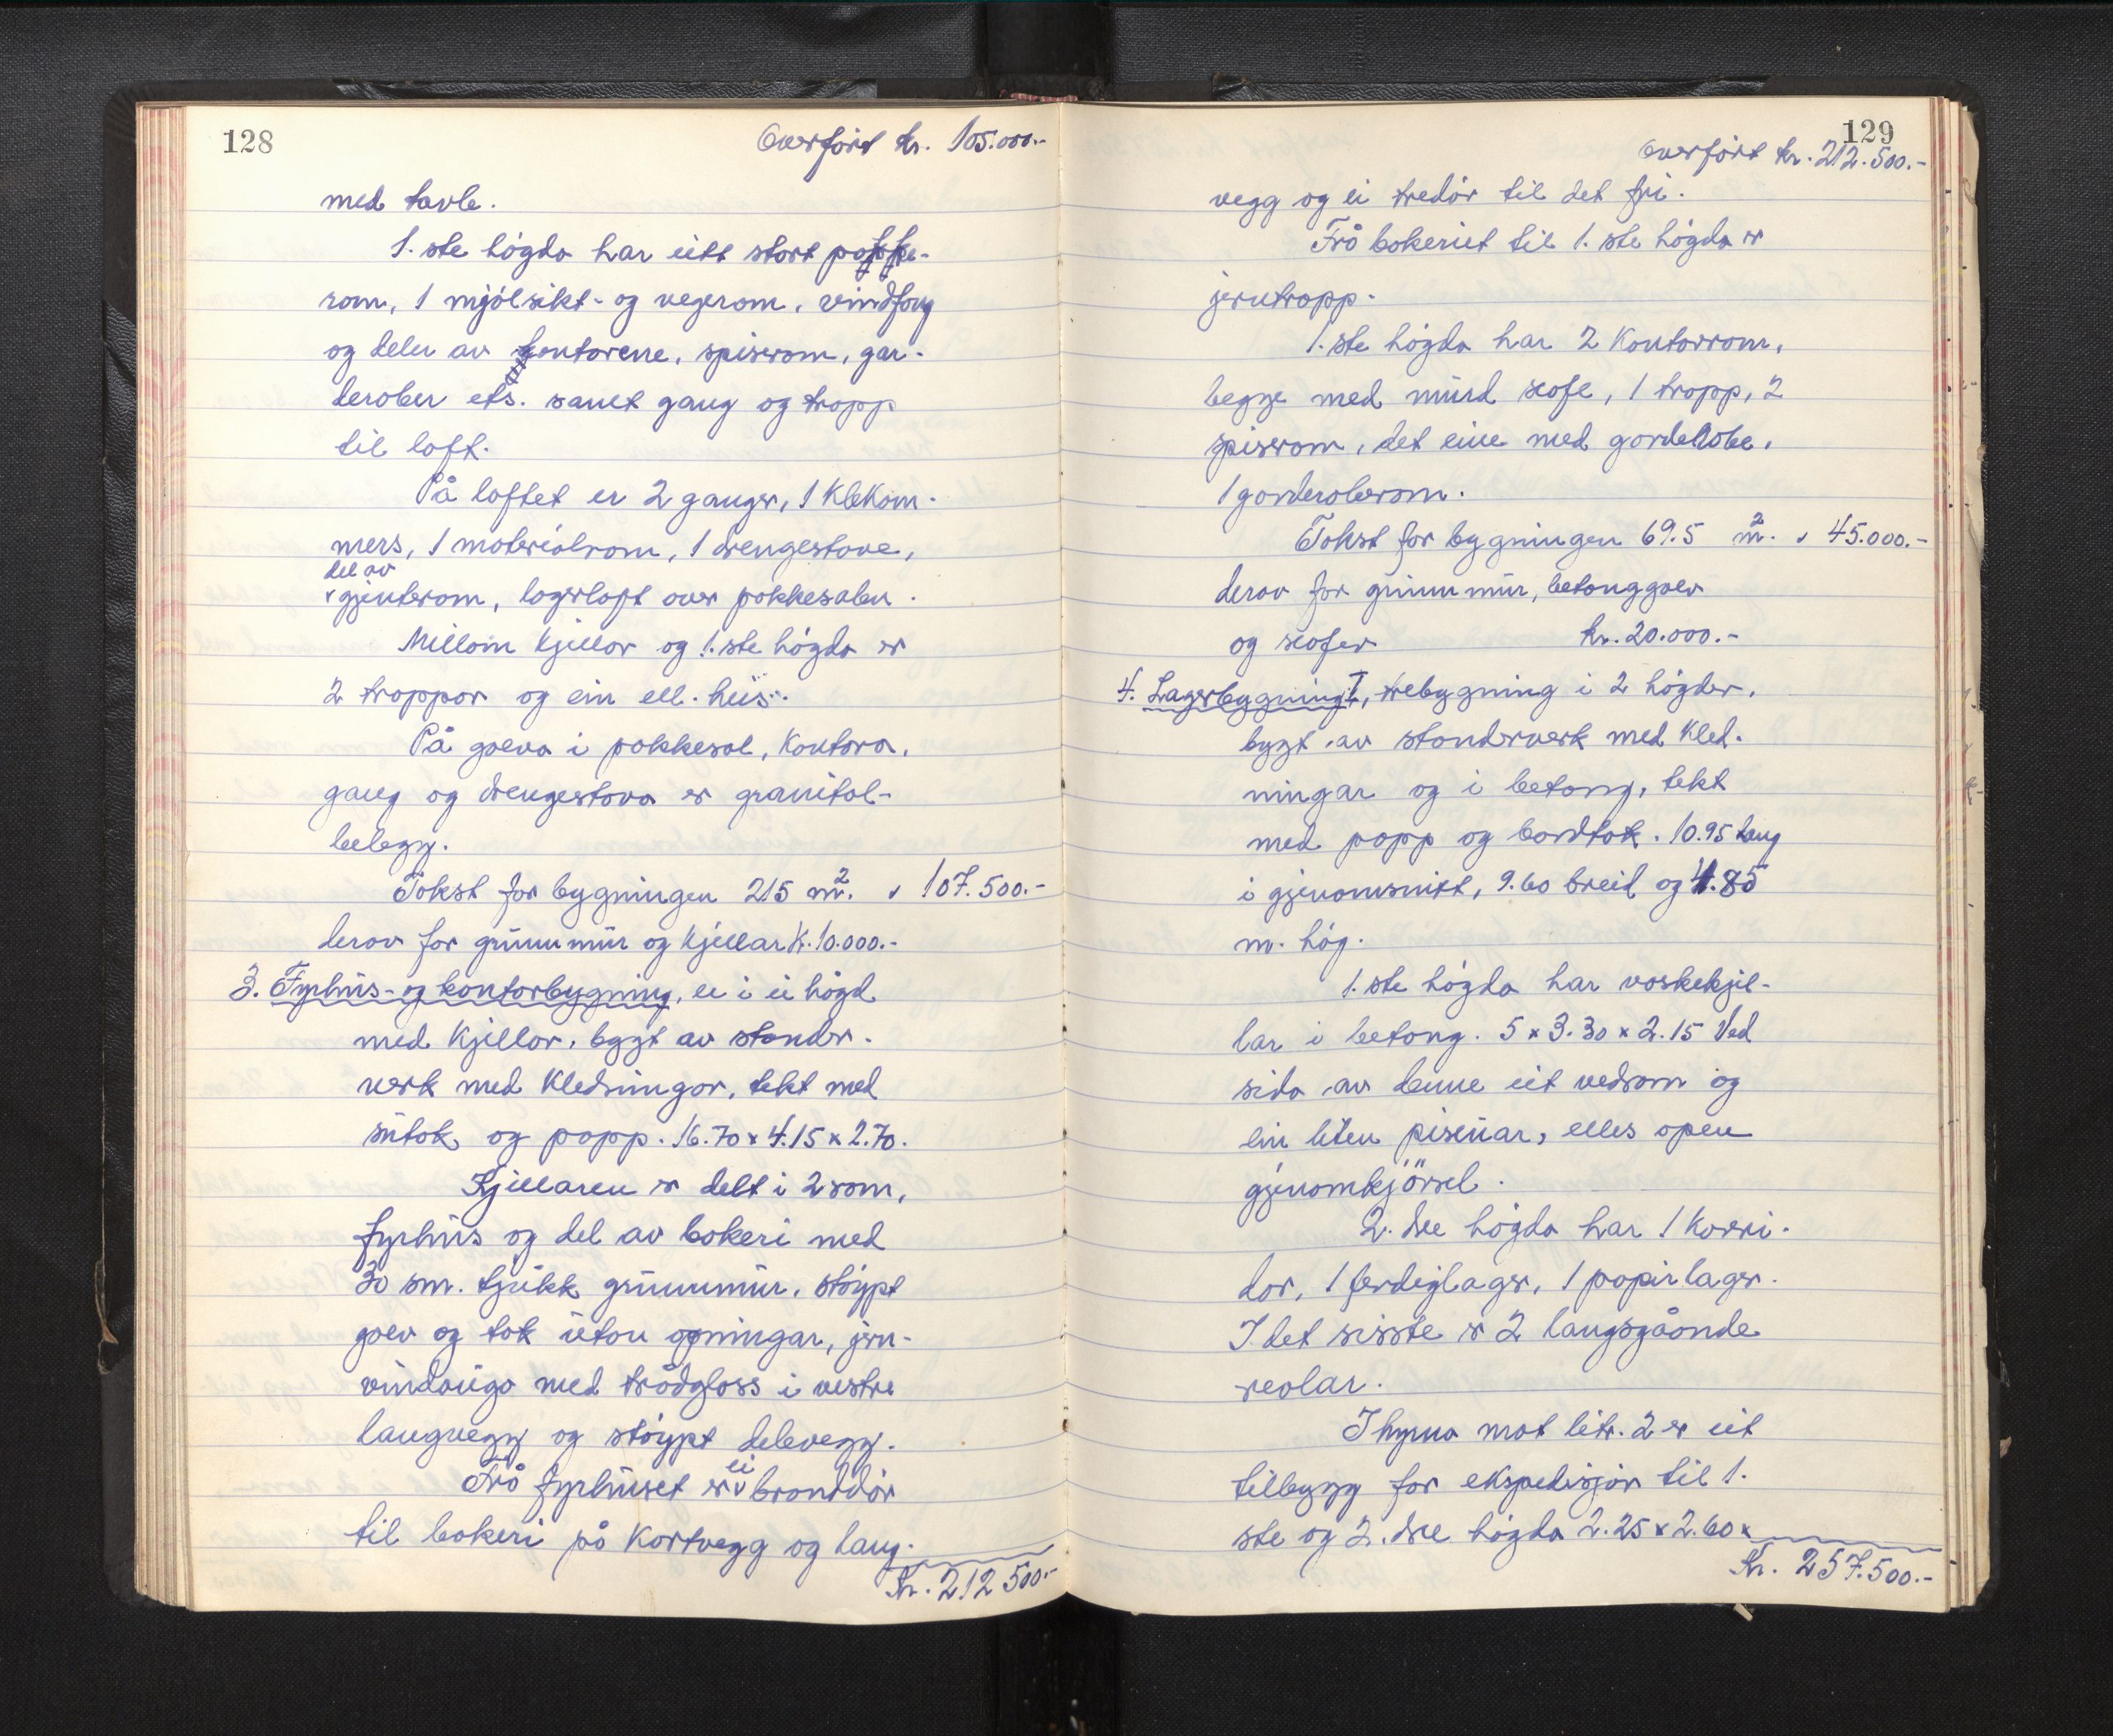 128
Overført kr. 105.000.-
med tavle.
1. ste høgda har eitt stort pakke-
rom, 1 mjølsikt- og vegerom, vindfang
og deler av kontorene, spiserom, gar-
derober ets. samt gang og trapp
til loft.
På loftet er 2 ganger, 1 klekam-
mers, 1 materialrom, 1 drengestove,
del av
gjenterom, lagerloft over pakkesalen.
Millom kjellar og 1. ste høgda er
2 trappar og ein ell. heis.
På golva i pakkesal, kontora,
gang og drengestova er granitol-
belegg.
Takst for bygningen 215 m². " 107.500.-
derav for grunnmur og kjellar K. 10.000.-
3. Fyrhus- og kontorbygning, er i ei høgd
med kjellar, bygt av stender-
verk med kledningar, tekt med
sutak og papp. 16.70 x 4.15 x 2.70.
Kjellaren er delt i 2 rom,
fyrhus og del av bakeri med
30 sm. tjukk grunnmur, støypt
golv og tak utan opningar, jern-
vindauga med trådglass i vestre
langvegg og støypt delevegg.
Frå fyrhuset er ei branddør
til bakeri på kortvegg og lang-
Kr. 212 500.-
129
Overført kr. 212.500.-
vegg og ei tredør til det fri.
Frå bakeriet til 1. ste høgda er
jerntrapp.
1. ste høgda har 2 kontorrom,
begge med murd safe, 1 trapp, 2
spiserom, det eine med garderobe,
1 garderoberom.
Takst for bygningen 69.5 m². " 45.000.-
derav for grunnmur, betonggolv
og safer kr. 20.000.-
4. Lagerbygning I, trebygning i 2 høgder,
bygt av standerverk med kled-
ningar og i betong, tekt
med papp og bordtak. 10.95 lang
i gjenomsnitt, 9.60 breid og 4.85
m. høg.
1. ste høgda har vaskekjel-
lar i betong. 5 x 3.30 x 2.15 Ved
sida av denne eit vedrom og
ein liten pisuar, elles open
gjenomkjörsel.
2. dre høgda har 1 korri-
dor, 1 ferdiglager, 1 papirlager.
I det sisste er 2 langsgåande
reolar.
I hyrna mot litr. 2 er eit
tilbygg for ekspedisjon til 1.
ste og 2. dre høgda 2.25 x 2.60 x
Kr. 257.500.-